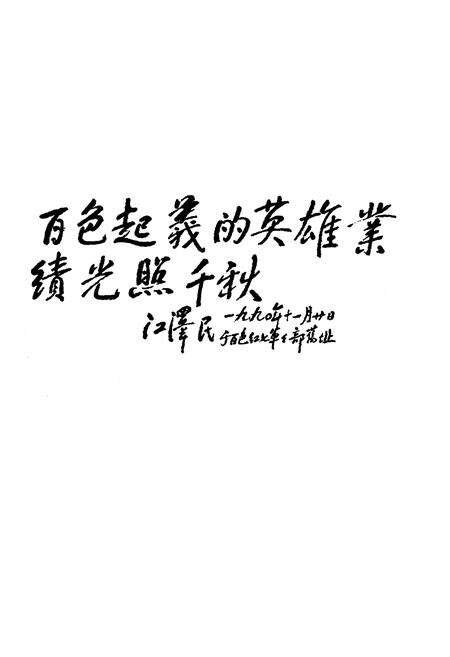 百色起義的英雄業
績光照千秋
江澤民 一九九〇年十一月廿日
于百色红七军军部舊址